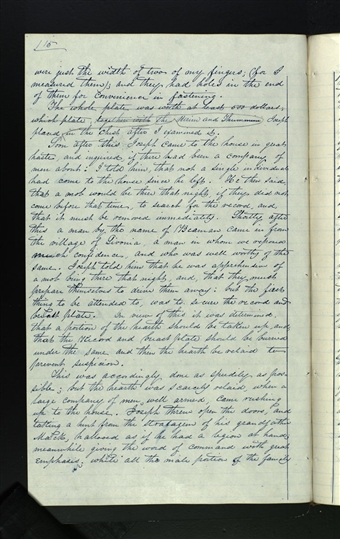 167
were just the width of two of my fingers, (for I
measured them), and they had holes in the end
of them for convenience in fastening.
The whole plate was worth at least 500 dollars,
which plate, together with the Urim and Thummim Joseph
placed in the chest after I examined it.
Soon after this Joseph came to the house in great
haste, and inquired, if there had been a company of
men about. I told him, that not a single individual
had come to the house since he left. He then said
that a mob would be there that night, if they did not
come before that time, to search for the record, and
that it must be removed immediately. Shortly after
this a man by the name of Beaman came in from
the village of Livonia, a man in whom we reposed
much confidence, and who was well worthy of the
same. Joseph told him that he was apprehensive of
a mob being there that night, and that they must
prepare themselves to drive them away; but the first
thing to be attended to, was to secure the record and
breast plate. In view of this it was determined
that a portion of the hearth should be taken up, and
that the record and breast plate should be buried
under the same, and then the hearth be relaid to
prevent suspicion.
This was accordingly done as speedily as pos-
sible; but the hearth was scarcely relaid, when a
large company of men, well armed, came rushing
up to the house. Joseph threw open the doors, and
taking a hint from the stratagem of his grandfather
Mack, hallooed as if he had a legion at hand,
meanwhile giving the word of command with great
emphasis; while all the male portion of the family